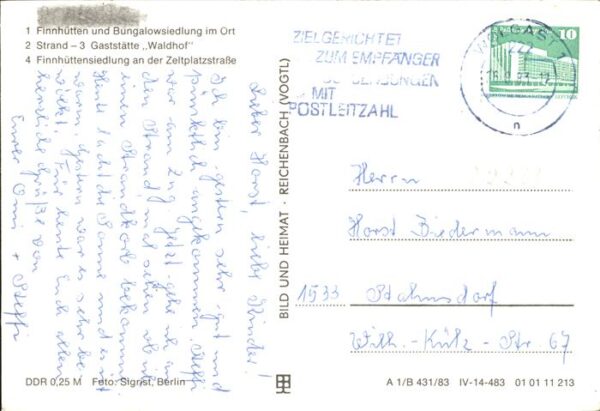 1 Finnhütten und Bungalowsiedlung im Ort
2 Strand – 3 Gaststätte „Waldhof"
4 Finnhüttensiedlung an der Zeltplatzstraße
ZIELGERICHTET
ZUM EMPFÄNGER
SENDUNGEN
MIT
POSTLEITZAHL
WOLGAST 1
222
n
10
Lieber Horst, liebe Kinder!
Ich bin gestern sehr gut und
pünktlich angekommen, Steffi
war am Zug. Jetzt gehe ich an
den Strand, mal sehen ob ich
einen Strandkorb bekomme.
Heute lacht die Sonne und es ist
warm, gestern war es sehr be-
wölkt. Für heute Euch allen
herzliche Grüße von
Eurer Omi + Steffi
BILD UND HEIMAT · REICHENBACH (VOGTL)
Herrn
Horst Biedermann
1533 Stahnsdorf
Wilh.-Külz-Str 67
DDR 0,25 M Foto: Sigrist, Berlin
A 1/B 431/83 IV-14-483 01 01 11 213